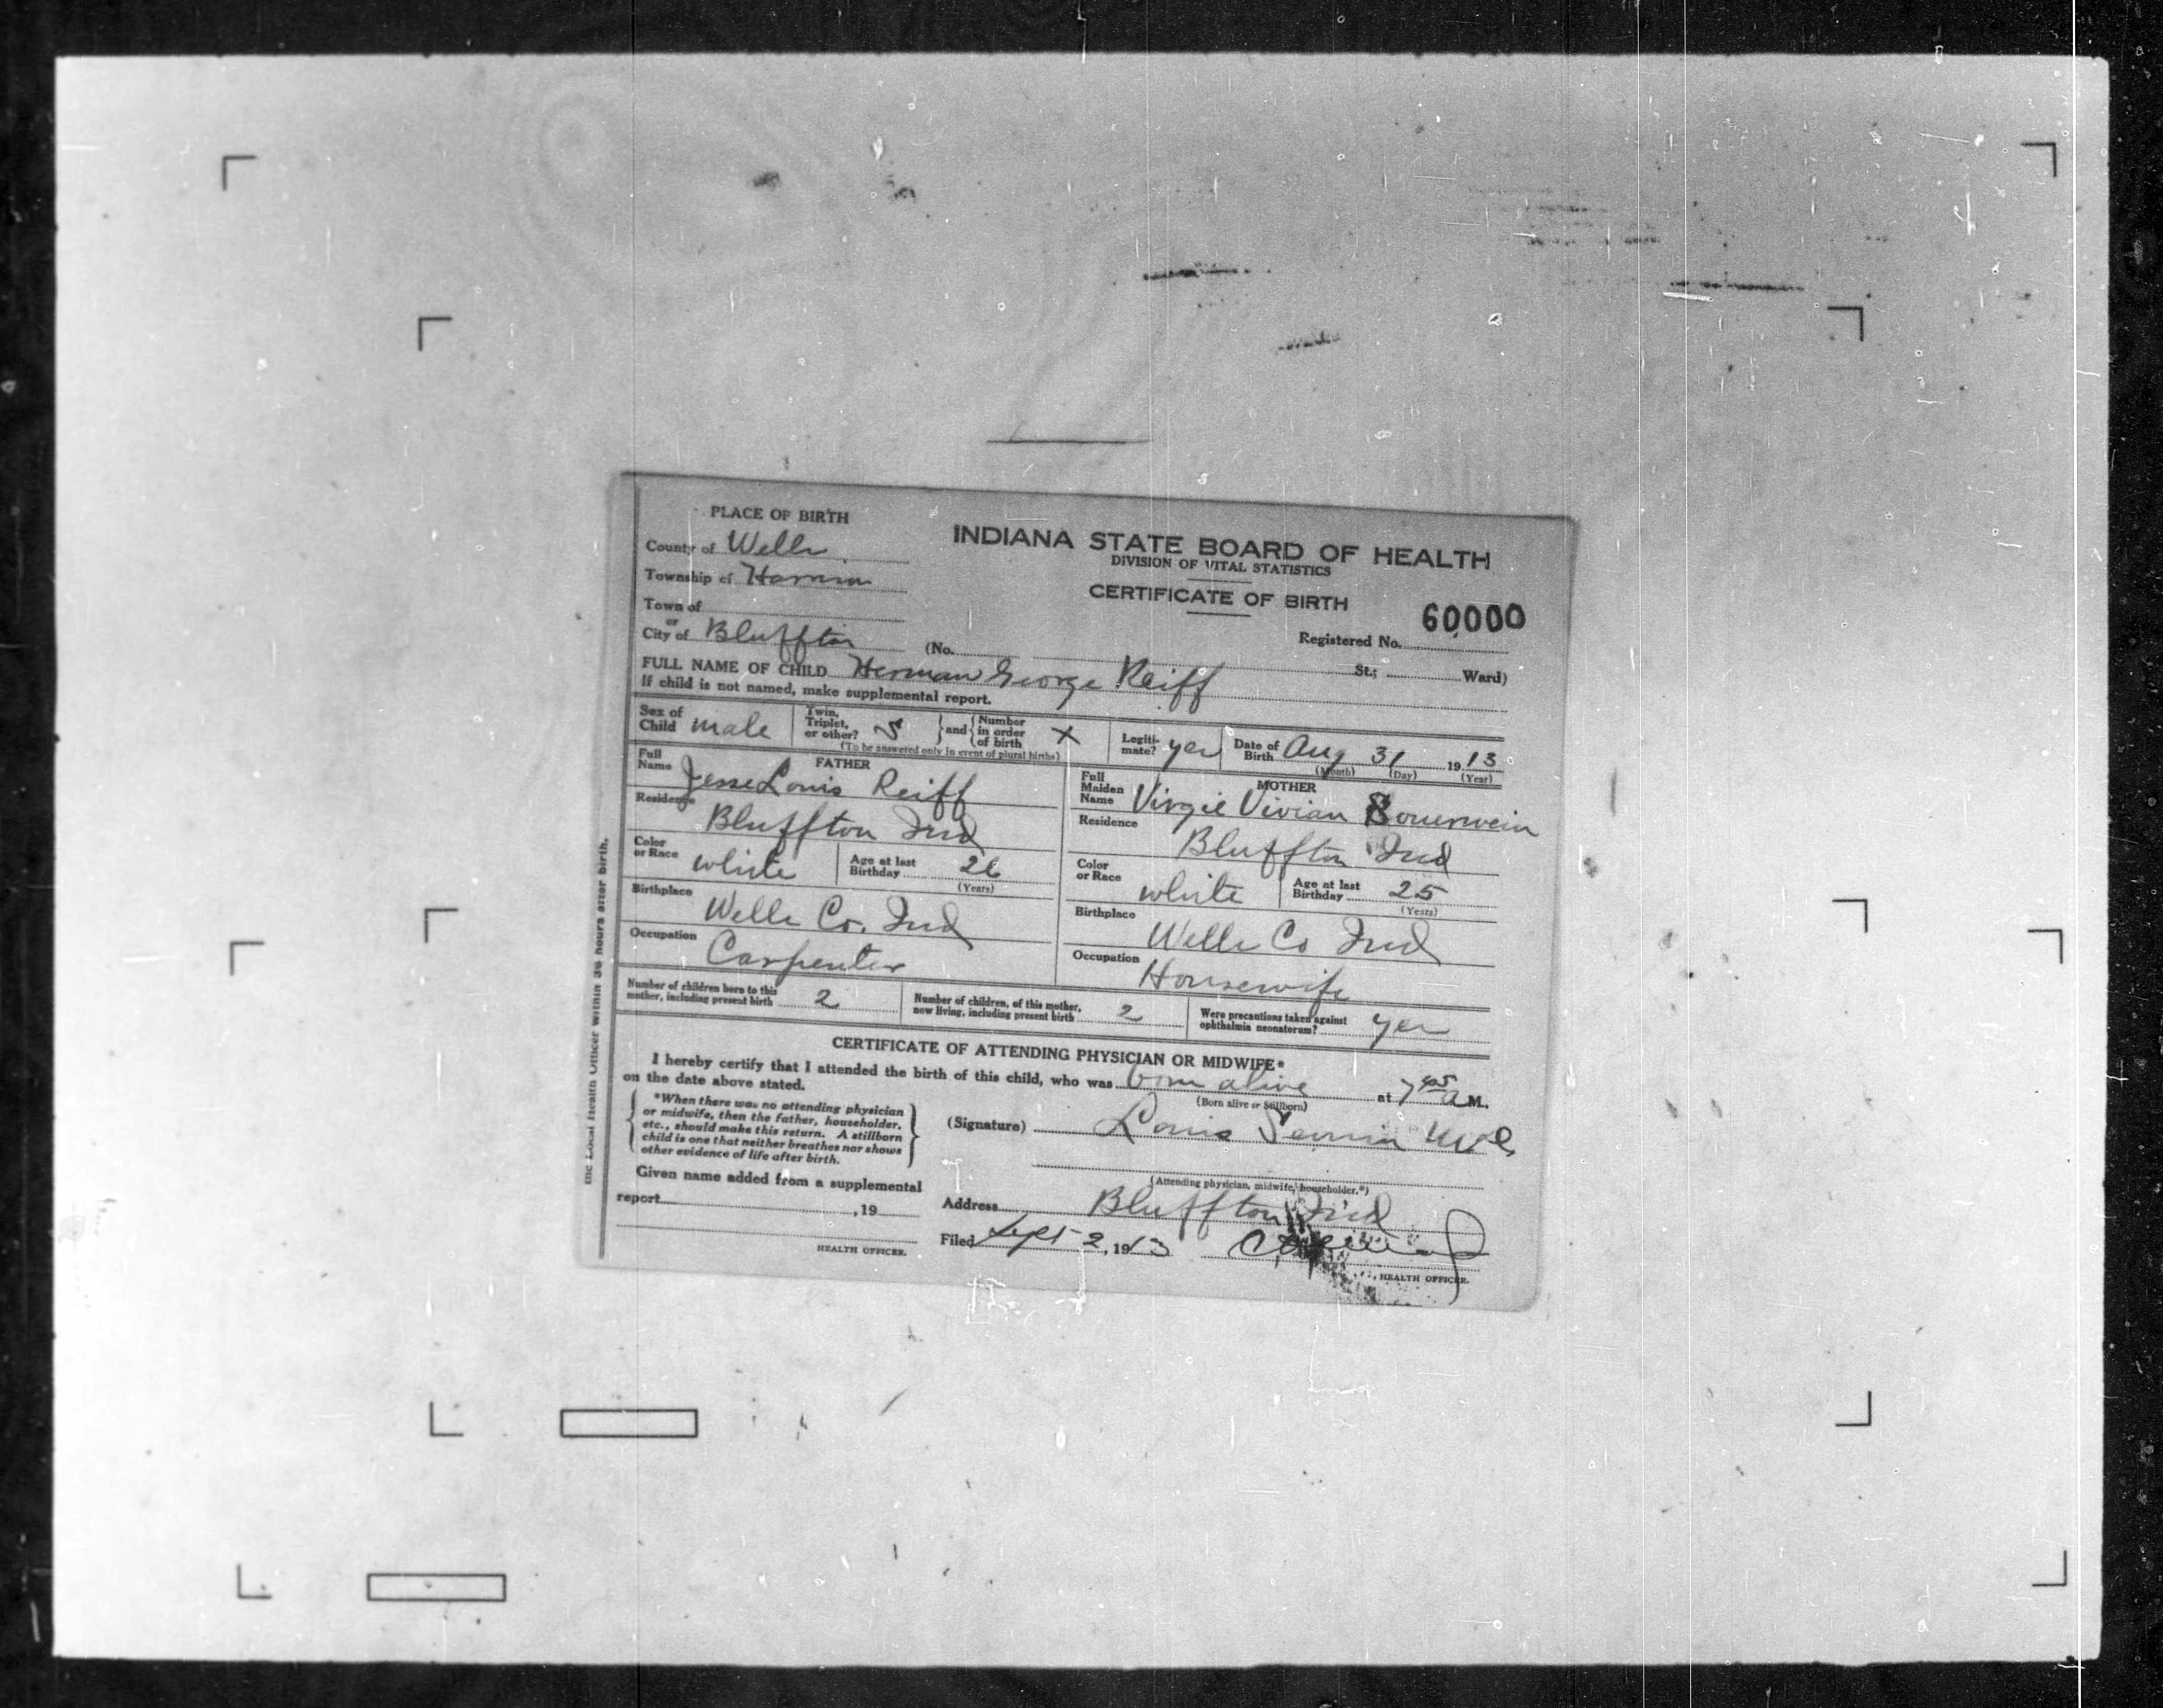 PLACE OF BIRTH
County of Wells
Township of Harrison
Town of
or
City of Bluffton
INDIANA STATE BOARD OF HEALTH
DIVISION OF VITAL STATISTICS
CERTIFICATE OF BIRTH
60000
Registered No.
(No. St; Ward)
FULL NAME OF CHILD Herman George Reiff
If child is not named, make supplemental report.
Sex of Child male
Twin, Triplet, or other? S } and { Number in order of birth X
(To be answered only in event of plural births)
Legiti-mate? yes
Date of Birth Aug 31 1913
(Month) (Day) (Year)
FATHER
Full Name Jesse Louis Reiff
Residence Bluffton Ind
Color or Race white
Age at last Birthday 26
(Years)
Birthplace Wells Co. Ind
Occupation Carpenter
MOTHER
Full Maiden Name Virgie Vivian
Residence Bluffton Ind
Color or Race white
Age at last Birthday 25
(Years)
Birthplace Wells Co Ind
Occupation Housewife
Number of children born to this mother, including present birth 2
Number of children, of this mother, now living, including present birth 2
Were precautions taken against ophthalmia neonatorum? yes
CERTIFICATE OF ATTENDING PHYSICIAN OR MIDWIFE*
I hereby certify that I attended the birth of this child, who was born alive at 7 45 a M.
on the date above stated.
(Born alive or Stillborn)
*When there was no attending physician
or midwife, then the father, householder,
etc., should make this return. A stillborn
child is one that neither breathes nor shows
other evidence of life after birth.
(Signature) Louis Severin M.D.
(Attending physician, midwife, householder.*)
Given name added from a supplemental
report , 19
HEALTH OFFICER.
Address Bluffton Ind
Filed Sept 2, 1913
HEALTH OFFICER.
the Local Health Officer within 36 hours after birth.